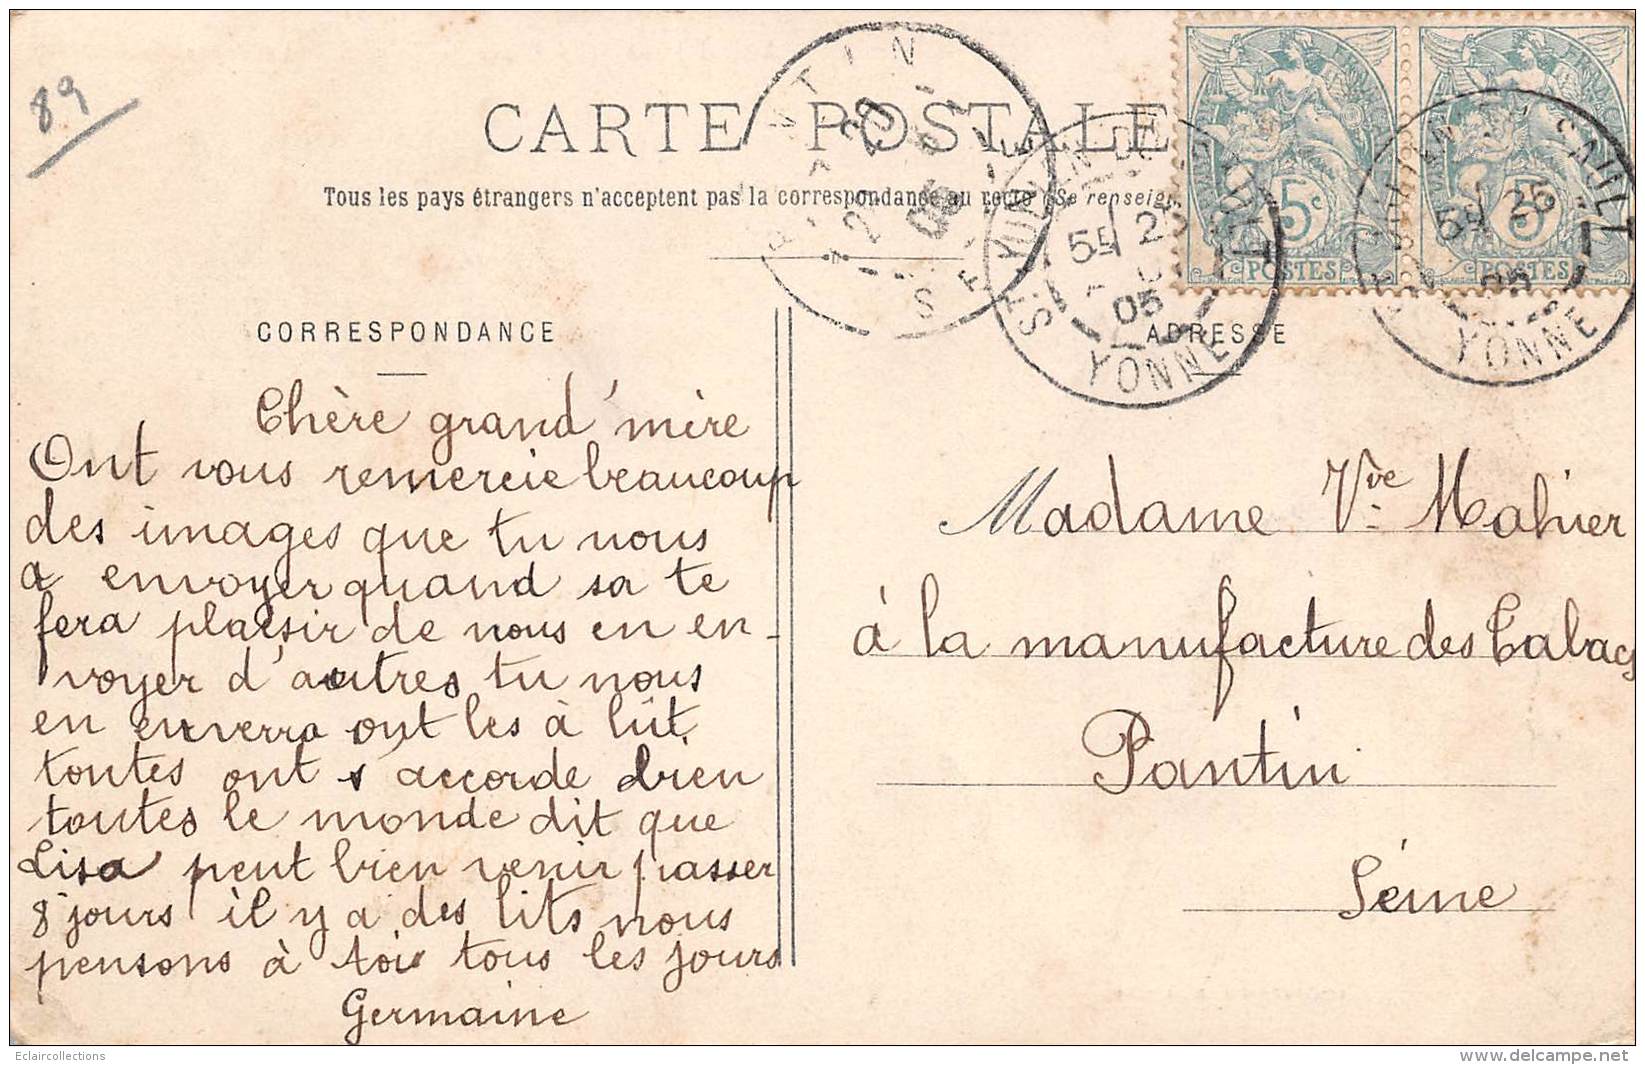 89
CARTE POSTALE
Tous les pays étrangers n'acceptent pas la correspondance au recto (Se renseign
PANTIN
SEINE
ST. JULIEN DU SAULT
5E 25
05
YONNE
5c
POSTES
5c
POSTES
ST. JULIEN DU SAULT
5E 25
05
YONNE
CORRESPONDANCE
Chère grand'mère
Ont vous remercie beaucoup
des images que tu nous
a envoyer quand sa te
fera plaisir de nous en en-
voyer d'autres tu nous
en enverra ont les à lût
toutes ont s'accorde bien
toutes le monde dit que
Lisa peut bien venir passer
8 jours il y a des lits nous
pensons à toi tous les jours
Germaine
ADRESSE
Madame Vve Mahier
à la manufacture des Tabacs
Pantin
Séine
Eclaircollections
www.delcampe.net